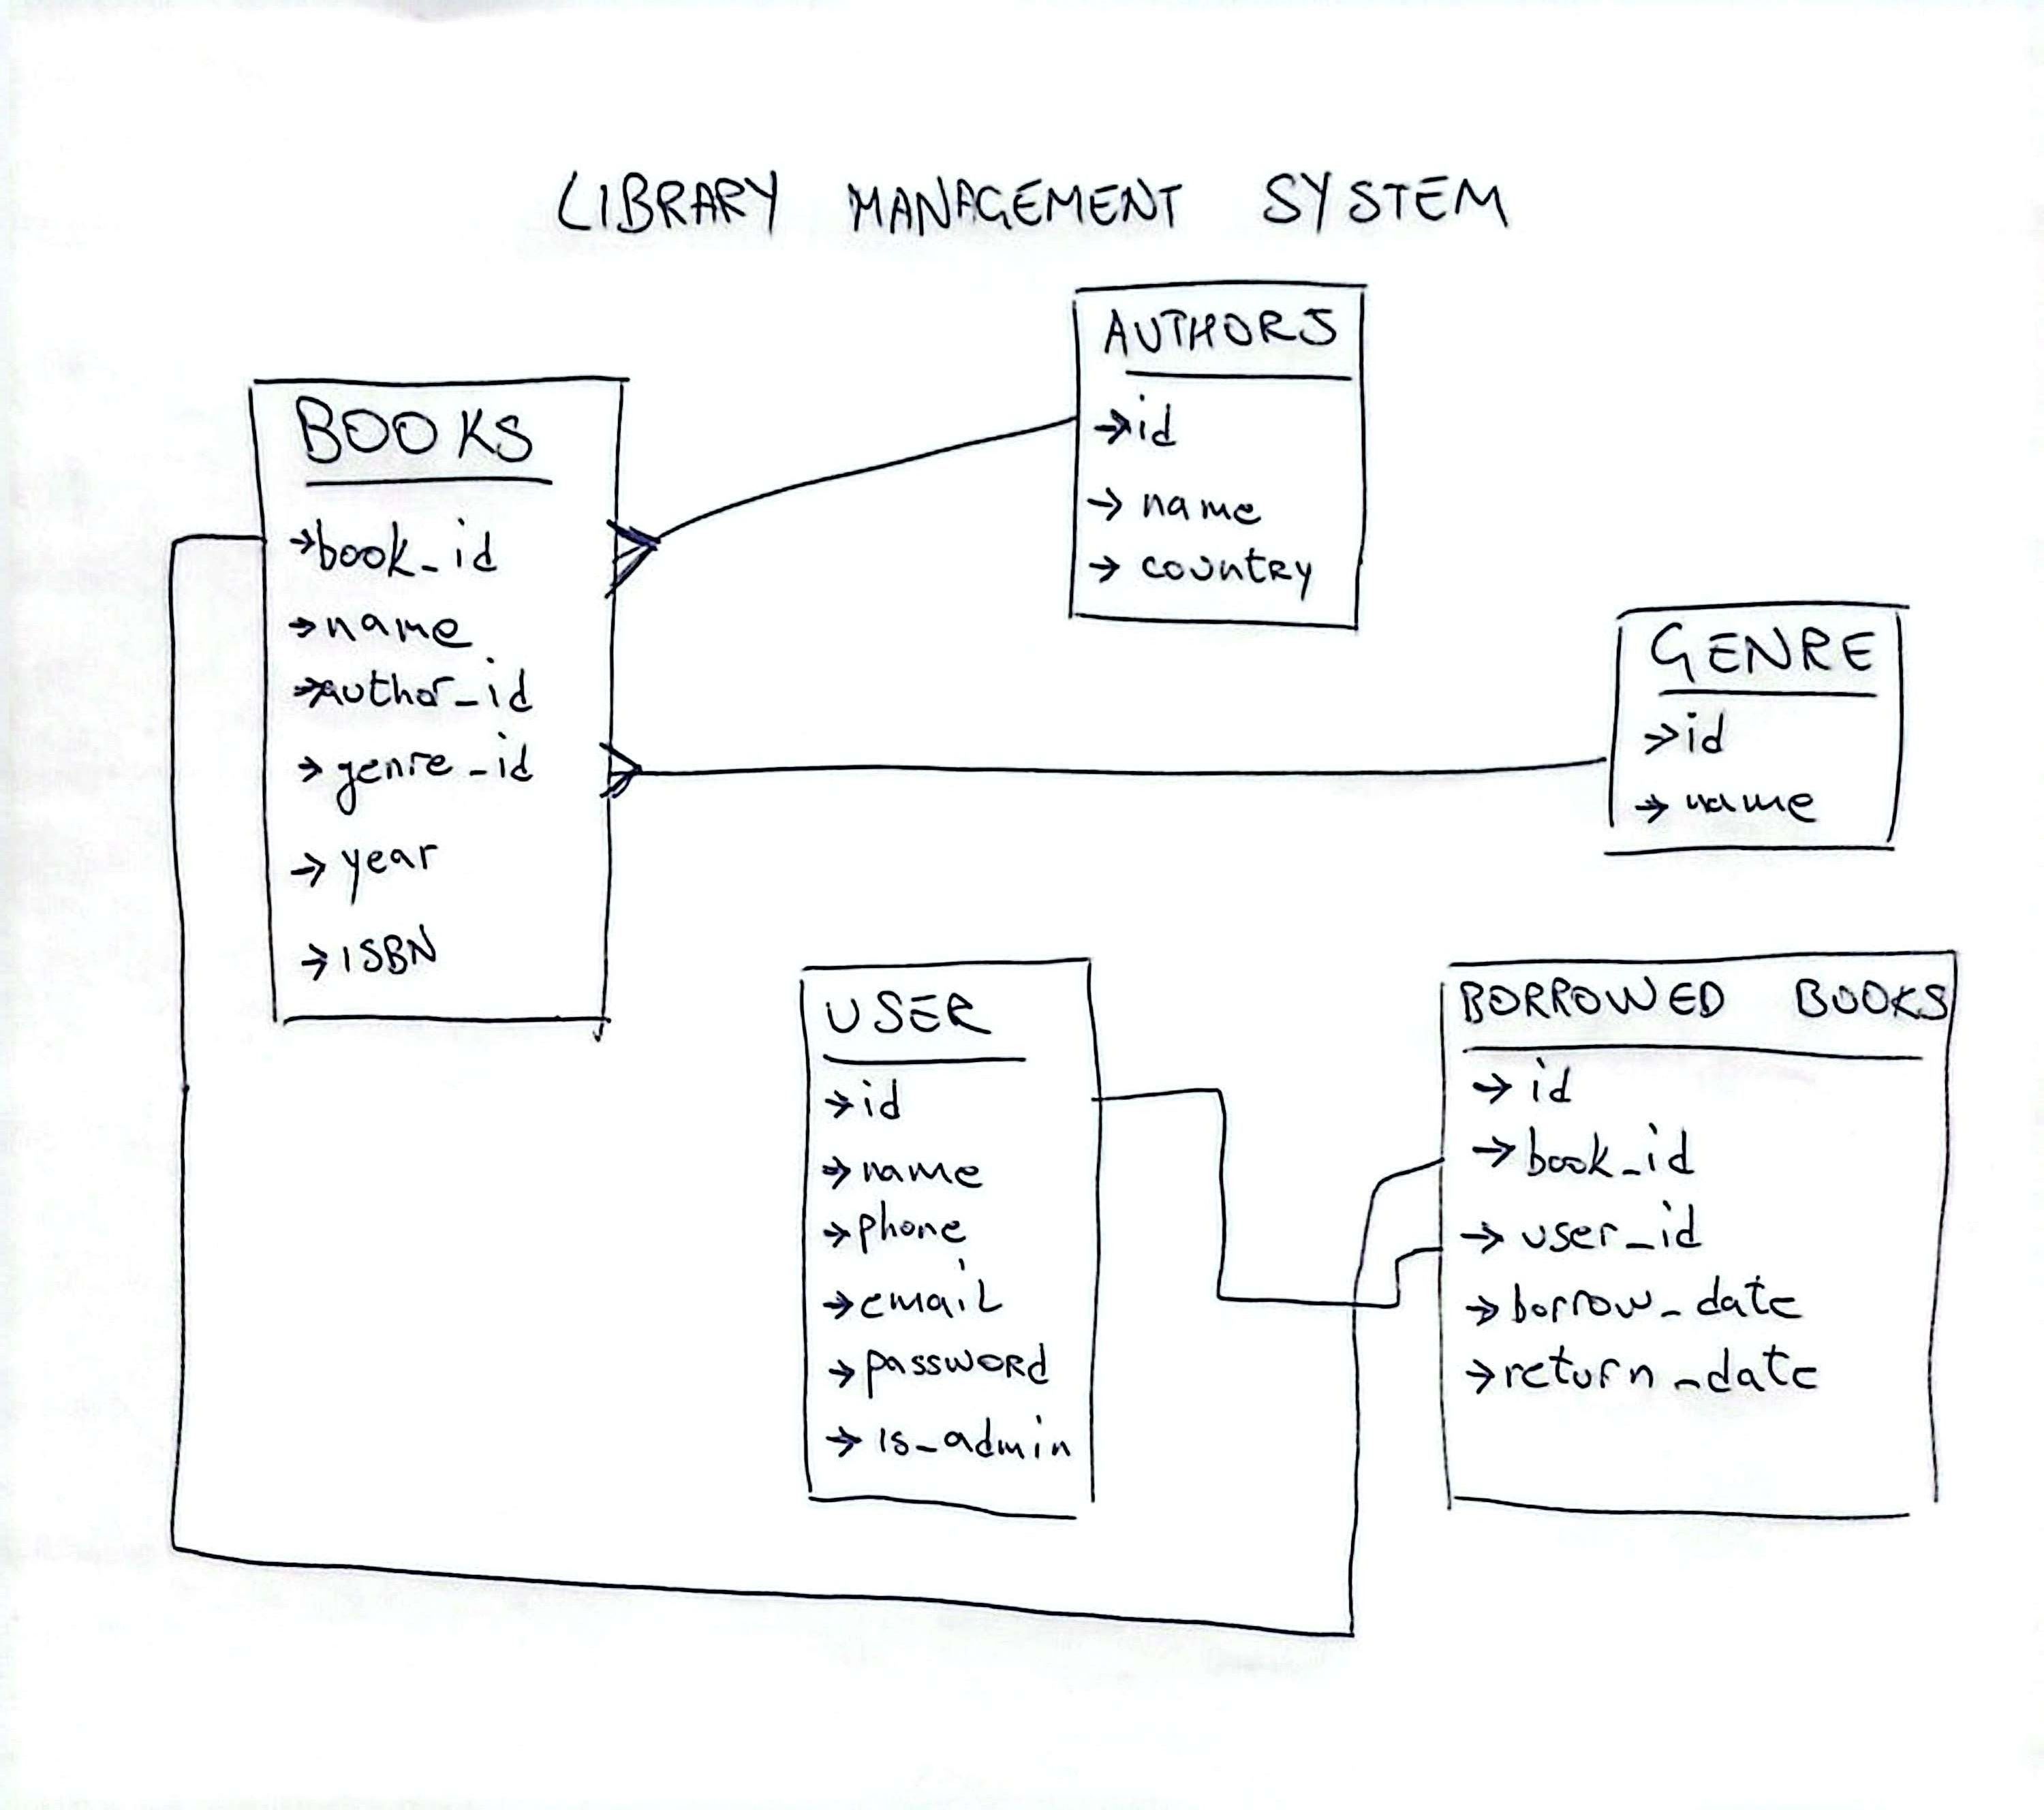 LIBRARY MANAGEMENT SYSTEM
BOOKS
→book_id
→name
→author_id
→genre_id
→year
→ISBN
AUTHORS
→id
→name
→country
GENRE
→id
→name
USER
→id
→name
→phone
→email
→password
→is_admin
BORROWED BOOKS
→id
→book_id
→user_id
→borrow_date
→return_date